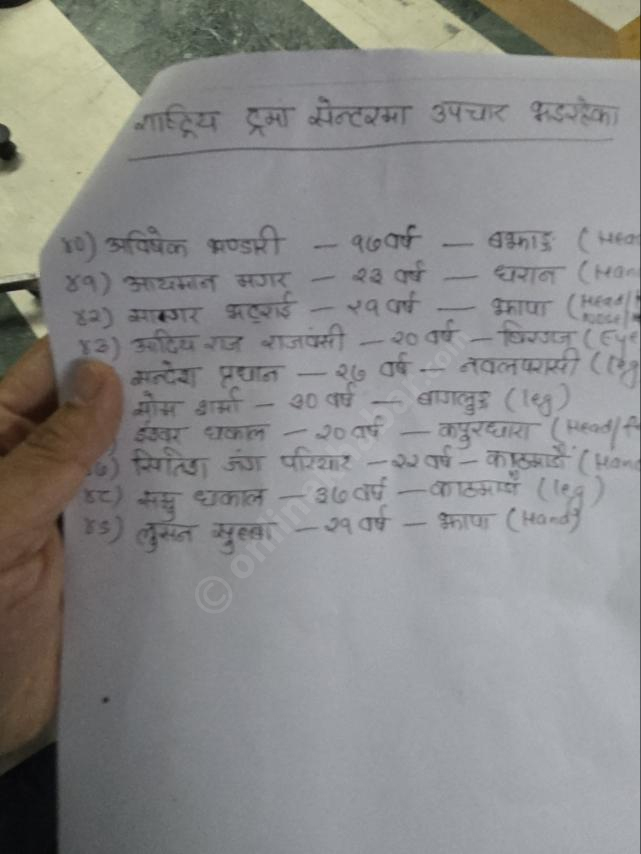 राष्ट्रिय ट्रमा सेन्टरमा उपचार भइरहेका
४०) अविषेक भण्डारी - १७ वर्ष - बझाङ (Head
४१) आयमान मगर - २३ वर्ष - धरान (Han
४२) सागर भट्टराई - २१ वर्ष - झापा (Head/
४३) आदिय राज राजवंसी - २० वर्ष - विरगंज (Eye
सन्देश प्रधान - २७ वर्ष - नवलपरासी (leg
सोम शर्मा - ३० वर्ष - बागलुङ (leg)
ईश्वर ढकाल - २० वर्ष - कपुरधारा (Head/
जंग परियार - २२ वर्ष - काठमाडौं (Hand
४८) ढकाल - ३७ वर्ष - काठमाडौं (leg)
४९) लुसन सुब्बा - २१ वर्ष - झापा (Hand)